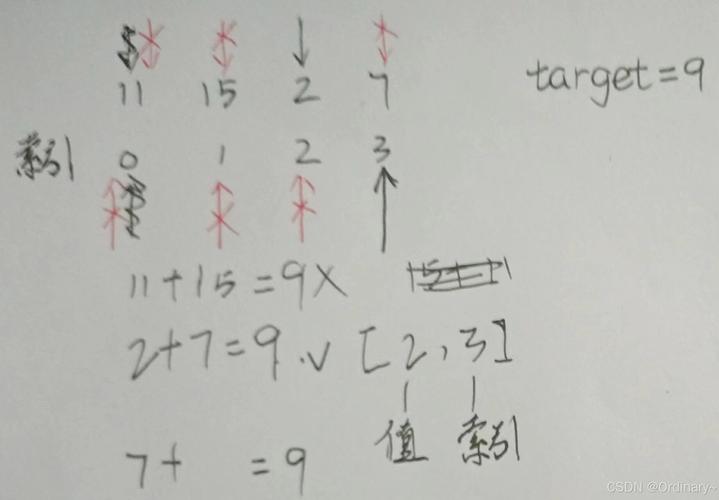 11 15 2 7 target=9
索引 0 1 2 3
11+15=9X
2+7=9.√ [2,3]
值 索引
7+ =9
CSDN @Ordinary~